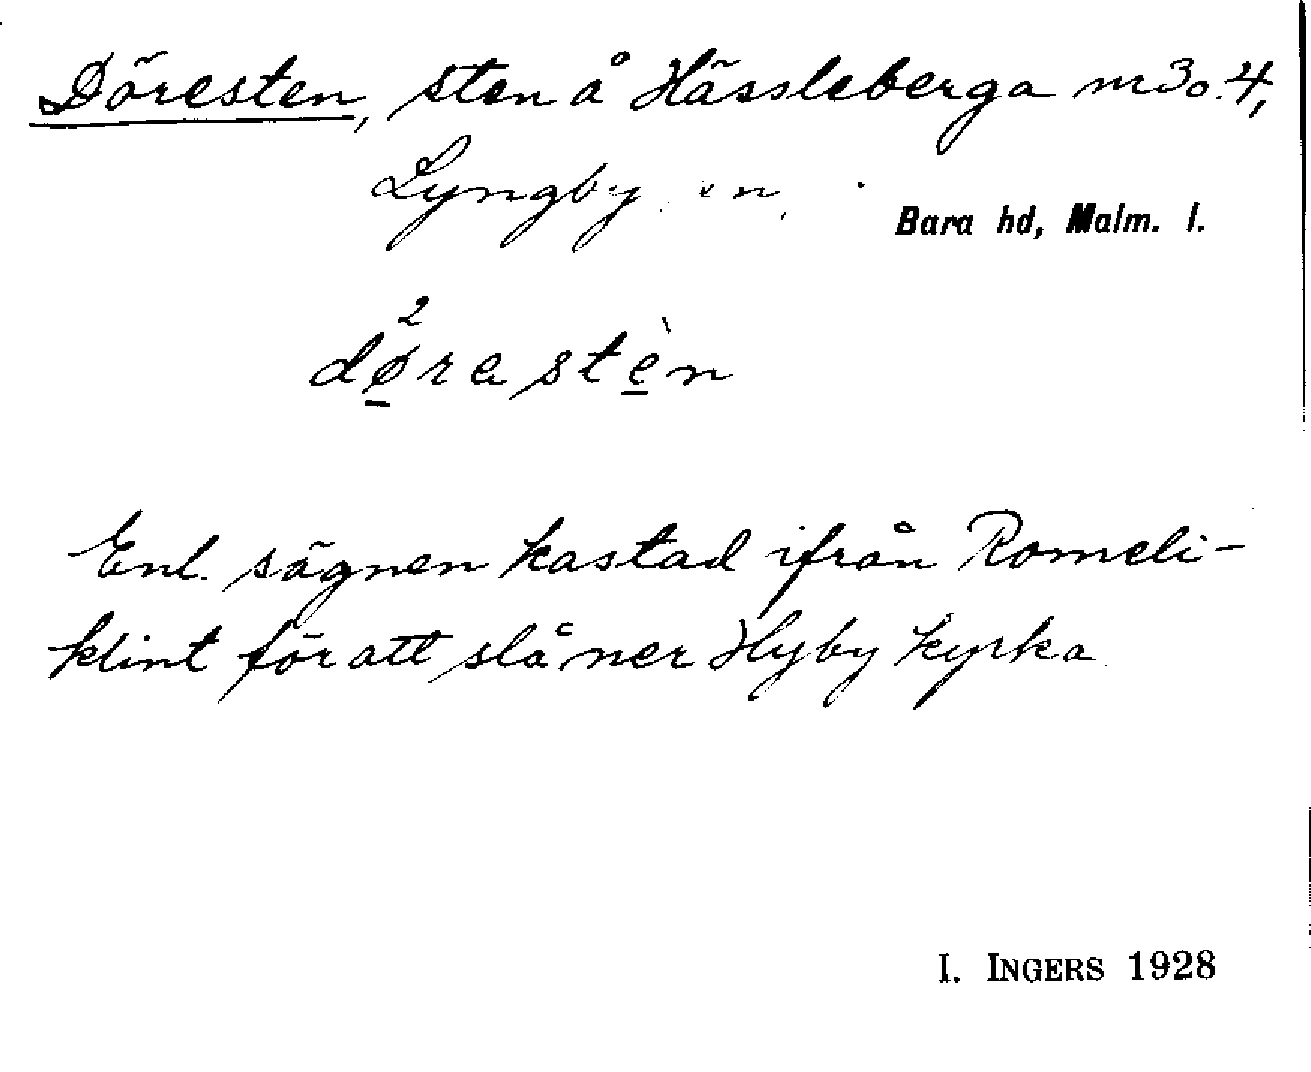 Döresten, sten å Hässleberga nr 3 o. 4,
Lyngby sn,
Bara hd, Malm. l.
dø̱²rastè̱n
Enl. sägnen kastad ifrån Romeli-
klint för att slå ner Hyby kyrka
I. INGERS 1928